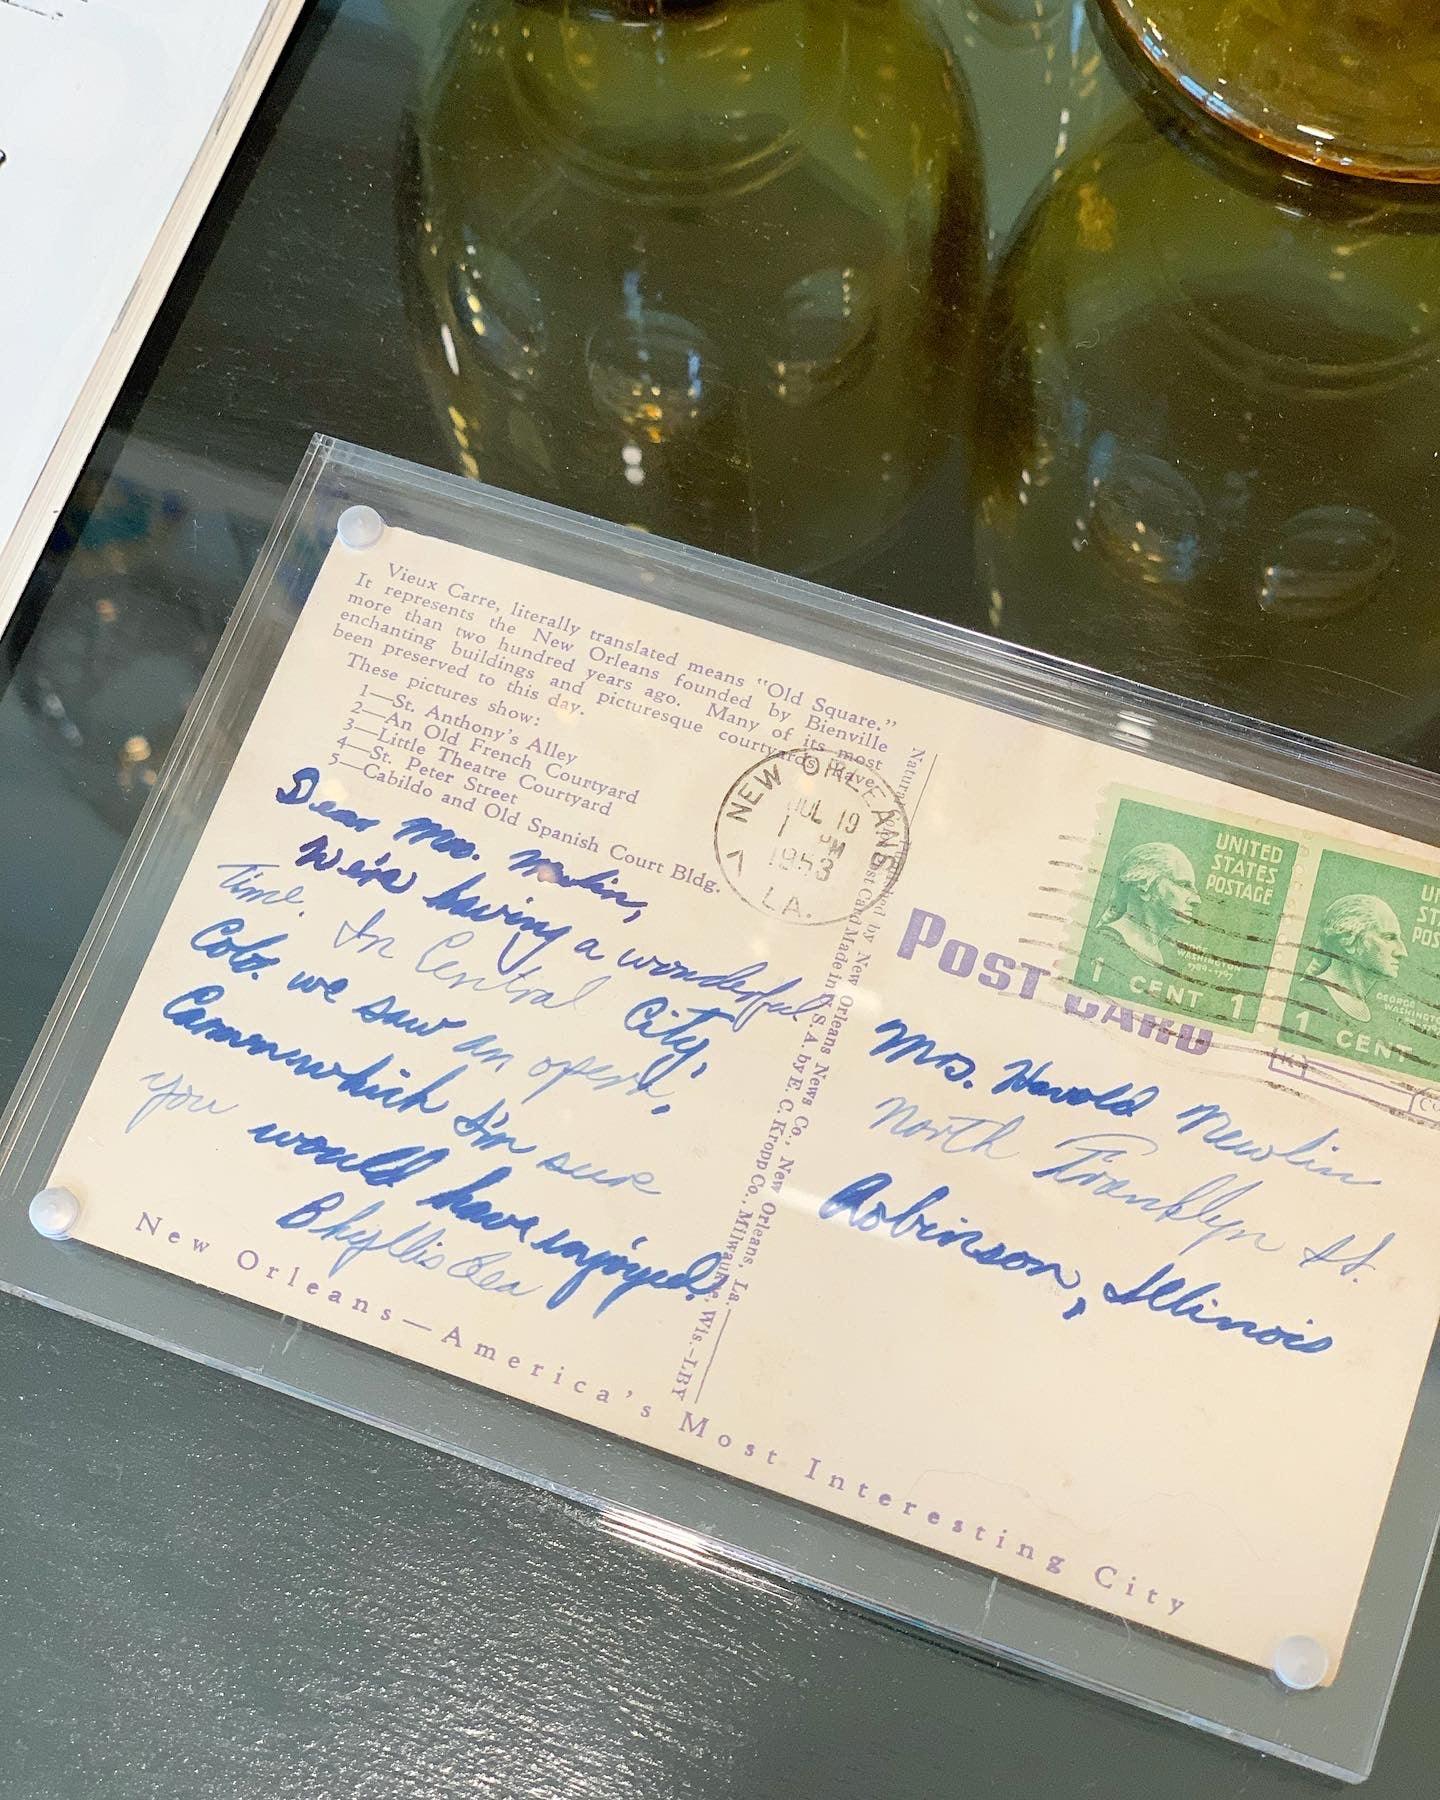 Vieux Carre, literally translated means "Old Square."
It represents the New Orleans founded by Bienville
more than two hundred years ago. Many of its most
enchanting buildings and picturesque courtyards have
been preserved to this day.
These pictures show:
1—St. Anthony's Alley
2—An Old French Courtyard
3—Little Theatre Courtyard
4—St. Peter Street
5—Cabildo and Old Spanish Court Bldg.
Dear Mrs.
We're having a wonderful
time. In Central City,
Colo. we saw an opera,
Carmen which I'm sure
you would have enjoyed.
Phyllis
New Orleans—America's Most Interesting City
by New Orleans News Co., New Orleans, La.
Post Card Made in U. S. A. by E. C. Kropp Co., Milwaukee, Wis.-LBY
NEW ORLEANS
JUL 19
1 PM
1953
LA.
POST CARD
UNITED
STATES
POSTAGE
WASHINGTON
1789-1797
1 CENT 1
GEORGE
WASHINGTON
1 CENT
Mrs. Harold Newlin
North Franklyn St.
Robinson, Illinois